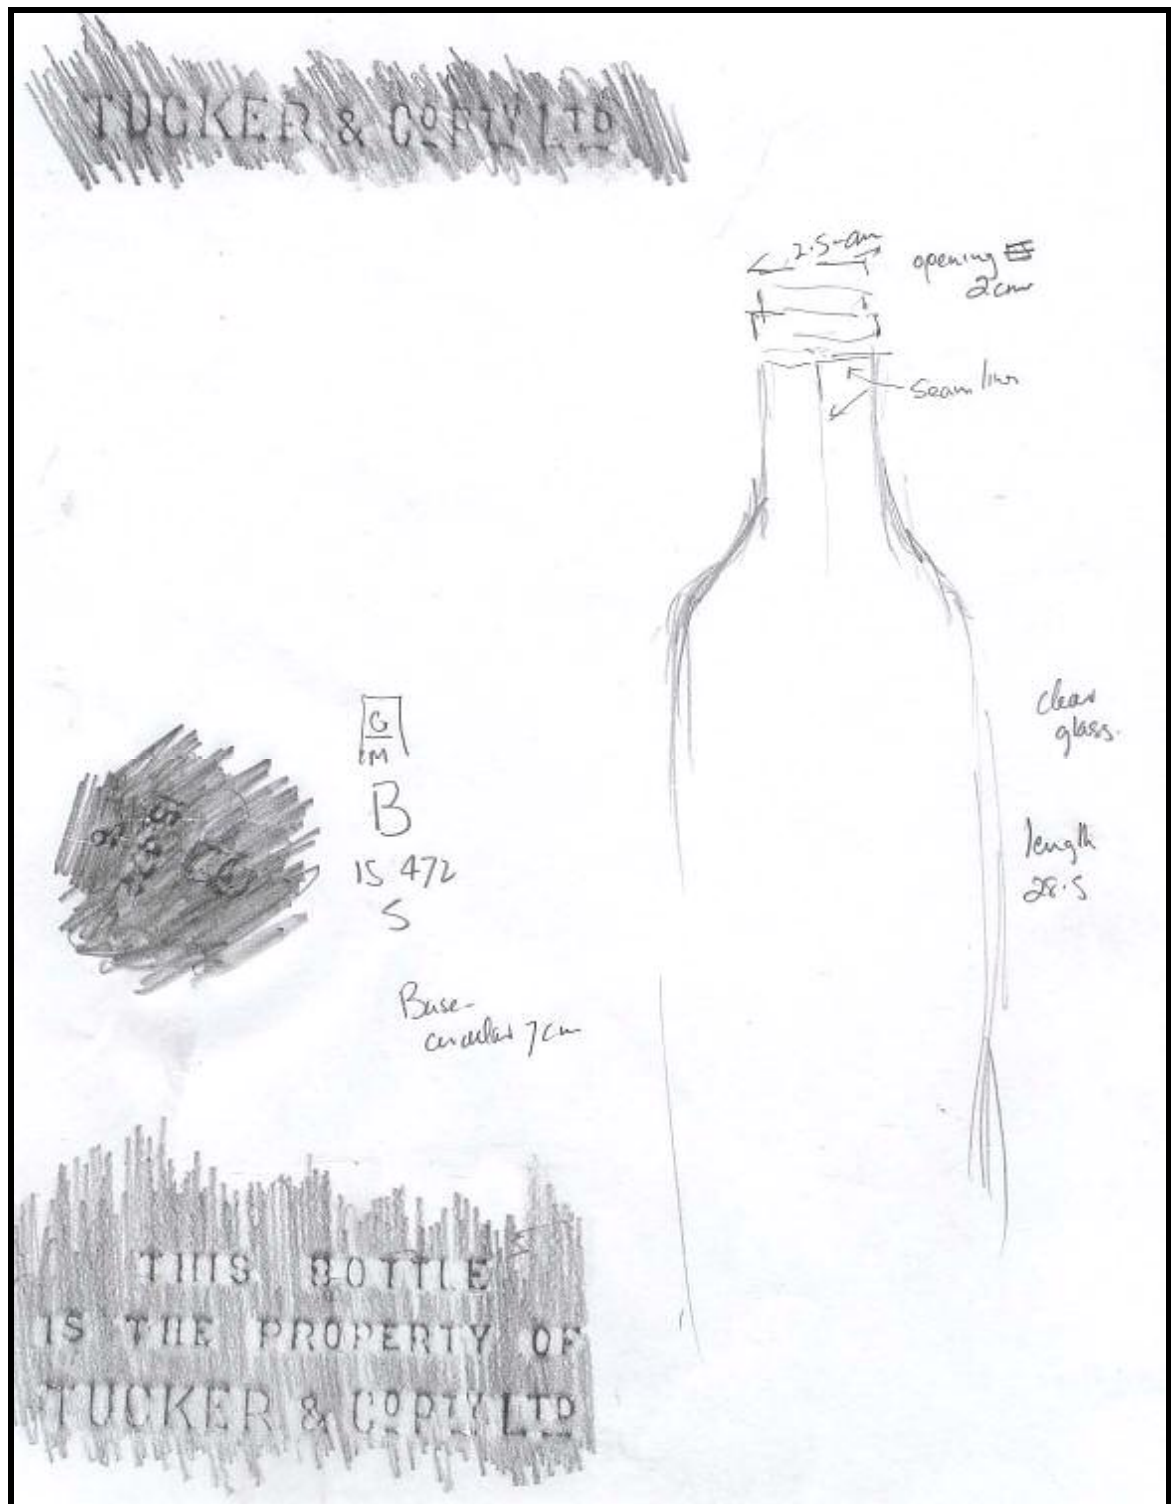 TUCKER & Co PTY LTD
2.5-cm
opening
2cm
Seam lines
clear
glass.
length
28.5
G
M
B
IS 472
S
Base-
circular 7cm
THIS BOTTLE
IS THE PROPERTY OF
TUCKER & Co PTY LTD